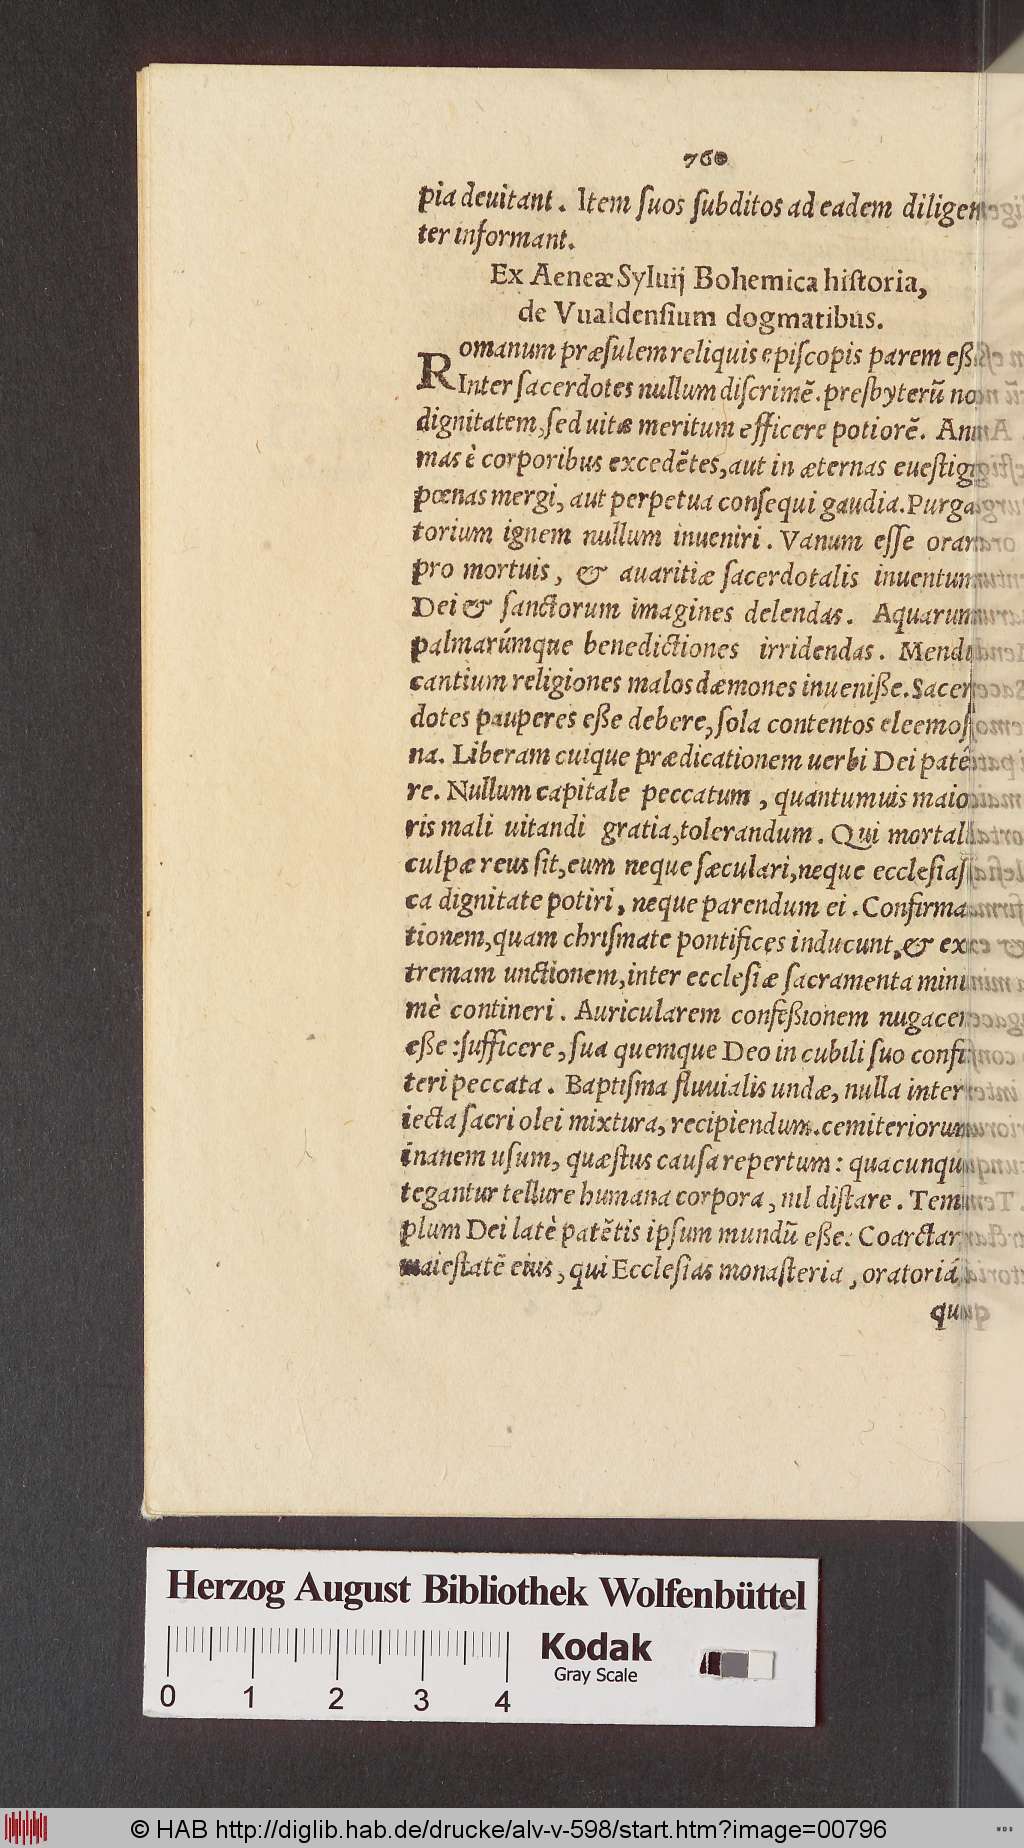 760
pia deuitant. Item suos subditos ad eadem diligen
ter informant.
Ex Aeneæ Syluij Bohemica historia,
de Vualdensium dogmatibus.
Romanum præsulem reliquis episcopis parem eß
Inter sacerdotes nullum discrimē. presbyterū non
dignitatem, sed uitæ meritum efficere potiorē. Ani
mas è corporibus excedētes, aut in æternas euestigi
pœnas mergi, aut perpetua consequi gaudia. Purga
torium ignem nullum inueniri. Vanum esse orar
pro mortuis, & auaritiæ sacerdotalis inuentum
Dei & sanctorum imagines delendas. Aquarum
palmarúmque benedictiones irridendas. Mendi
cantium religiones malos dæmones inueniße. Sacer
dotes pauperes eße debere, sola contentos eleemos
na. Liberam cuique prædicationem uerbi Dei patē
re. Nullum capitale peccatum, quantumuis maio
ris mali uitandi gratia, tolerandum. Qui mortali
culpæ reus sit, eum neque sæculari, neque ecclesias
ca dignitate potiri, neque parendum ei. Confirma
tionem, quam chrismate pontifices inducunt, & ex
tremam unctionem, inter ecclesiæ sacramenta mini
mè contineri. Auricularem confeßionem nugacem
eße: sufficere, sua quemque Deo in cubili suo confi
teri peccata. Baptisma fluuialis undæ, nulla inter
iecta sacri olei mixtura, recipiendum. cemiteriorum
inanem usum, quæstus causa repertum: quacunqu
tegantur tellure humana corpora, nil distare. Tem
plum Dei latè patētis ipsum mundū eße. Coarctar
maiestatē eius, qui Ecclesias monasteria, oratoriá
qu
Herzog August Bibliothek Wolfenbüttel
Kodak
Gray Scale
0 1 2 3 4
© HAB http://diglib.hab.de/drucke/alv-v-598/start.htm?image=00796